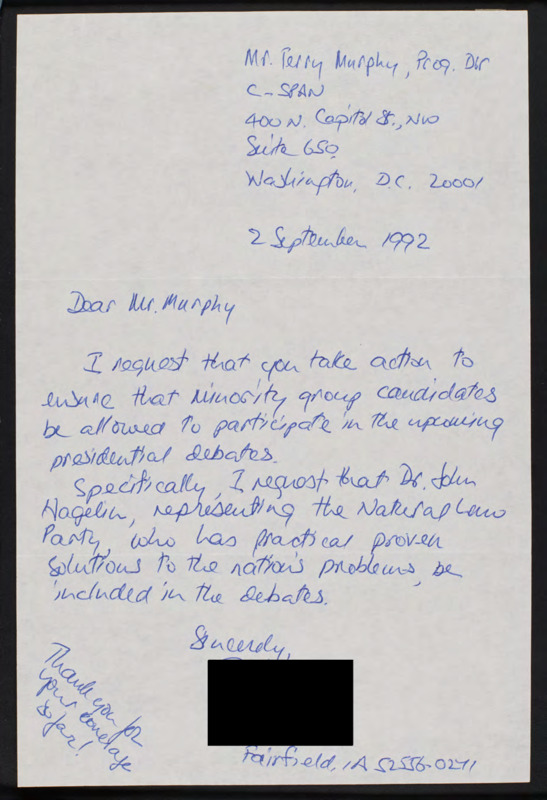 Mr. Terry Murphy, Prog. Dir
C-SPAN
400 N. Capitol St., NW
Suite 650
Washington, D.C. 20001
2 September 1992
Dear Mr. Murphy
I request that you take action to
ensure that minority group candidates
be allowed to participate in the upcoming
presidential debates.
Specifically, I request that Dr. John
Hagelin, representing the Natural Law
Party, who has practical proven
solutions to the nation's problems, be
included in the debates.
Sincerely,
Thank you for
your coverage
so far!
Fairfield, IA 52556-0271